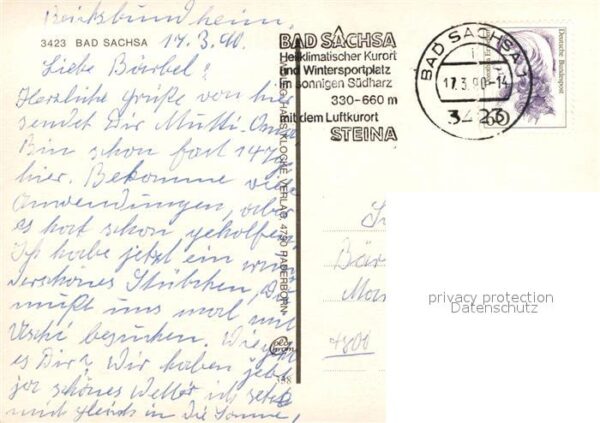 Reichsbundheim,
3423 BAD SACHSA 17.3.90.
Liebe Bärbel!
Herzliche Grüße von hier
sendet Dir Mutti. Oma
Bin schon fast 14 Tg
hier. Bekomme viel
Anwendungen, aber
es hat schon geholfen.
Ich habe jetzt ein wun
derschönes Stübchen, Du
mußt uns mal mit
Uschi besuchen. Wie geht
es Dir? Wir haben jetzt
ja schönes Wetter ich setze
mich gleich in die Sonne,
HANS KLOCKE VERLAG, 4790 PADERBORN
color chrom
BAD SACHSA
Heilklimatischer Kurort
und Wintersportplatz
im sonnigen Südharz
330-660 m
mit dem Luftkurort
STEINA
BAD SACHSA 1
17.3.90-14
3423
Deutsche Bundespost
60
Bär
4800
privacy protection
Datenschutz